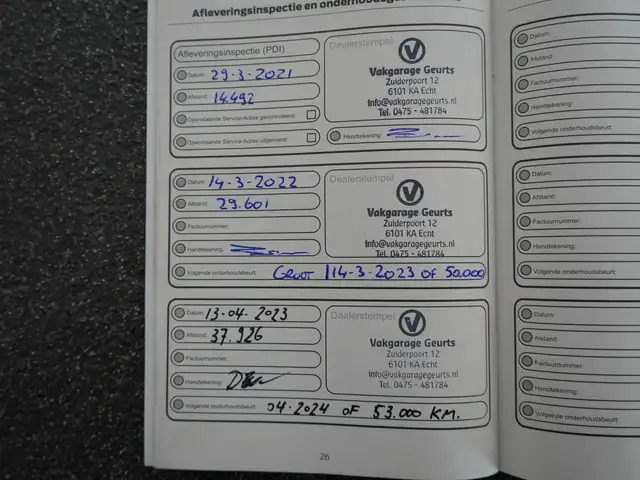 Afleveringsinspectie en onderhouds
Afleveringsinspectie (PDI)
Datum: 29-3-2021
Afstand: 14.492
Openstaande Service-Acties gecontroleerd:
Openstaande Service-Acties uitgevoerd:
Dealerstempel
Vakgarage Geurts
Zuiderpoort 12
6101 KA Echt
info@vakgaragegeurts.nl
Tel. 0475 - 481784
Handtekening:
Datum: 14-3-2022
Afstand: 29.601
Factuurnummer:
Handtekening:
Dealerstempel
Vakgarage Geurts
Zuiderpoort 12
6101 KA Echt
info@vakgaragegeurts.nl
Tel. 0475 - 481784
Volgende onderhoudsbeurt: GROOT 14-3-2023 OF 50.000
Datum: 13-04-2023
Afstand: 37.926
Factuurnummer:
Handtekening:
Dealerstempel
Vakgarage Geurts
Zuiderpoort 12
6101 KA Echt
info@vakgaragegeurts.nl
Tel. 0475 - 481784
Volgende onderhoudsbeurt: 04-2024 OF 53.000 KM.
26
Datum:
Afstand:
Factuurnummer:
Handtekening:
Volgende onderhoudsbeurt:
Datum:
Afstand:
Factuurnummer:
Handtekening:
Volgende onderhoudsbeurt:
Datum:
Afstand:
Factuurnummer:
Handtekening:
Volgende onderhoudsbeurt: